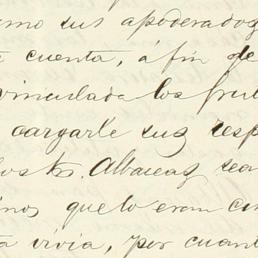 omo sus apoderados
cuenta, á fin de
vinculada los fru
cargarle sus resp
los Srs. Albaceas sea
que lo eran cu
vivia, por cuant